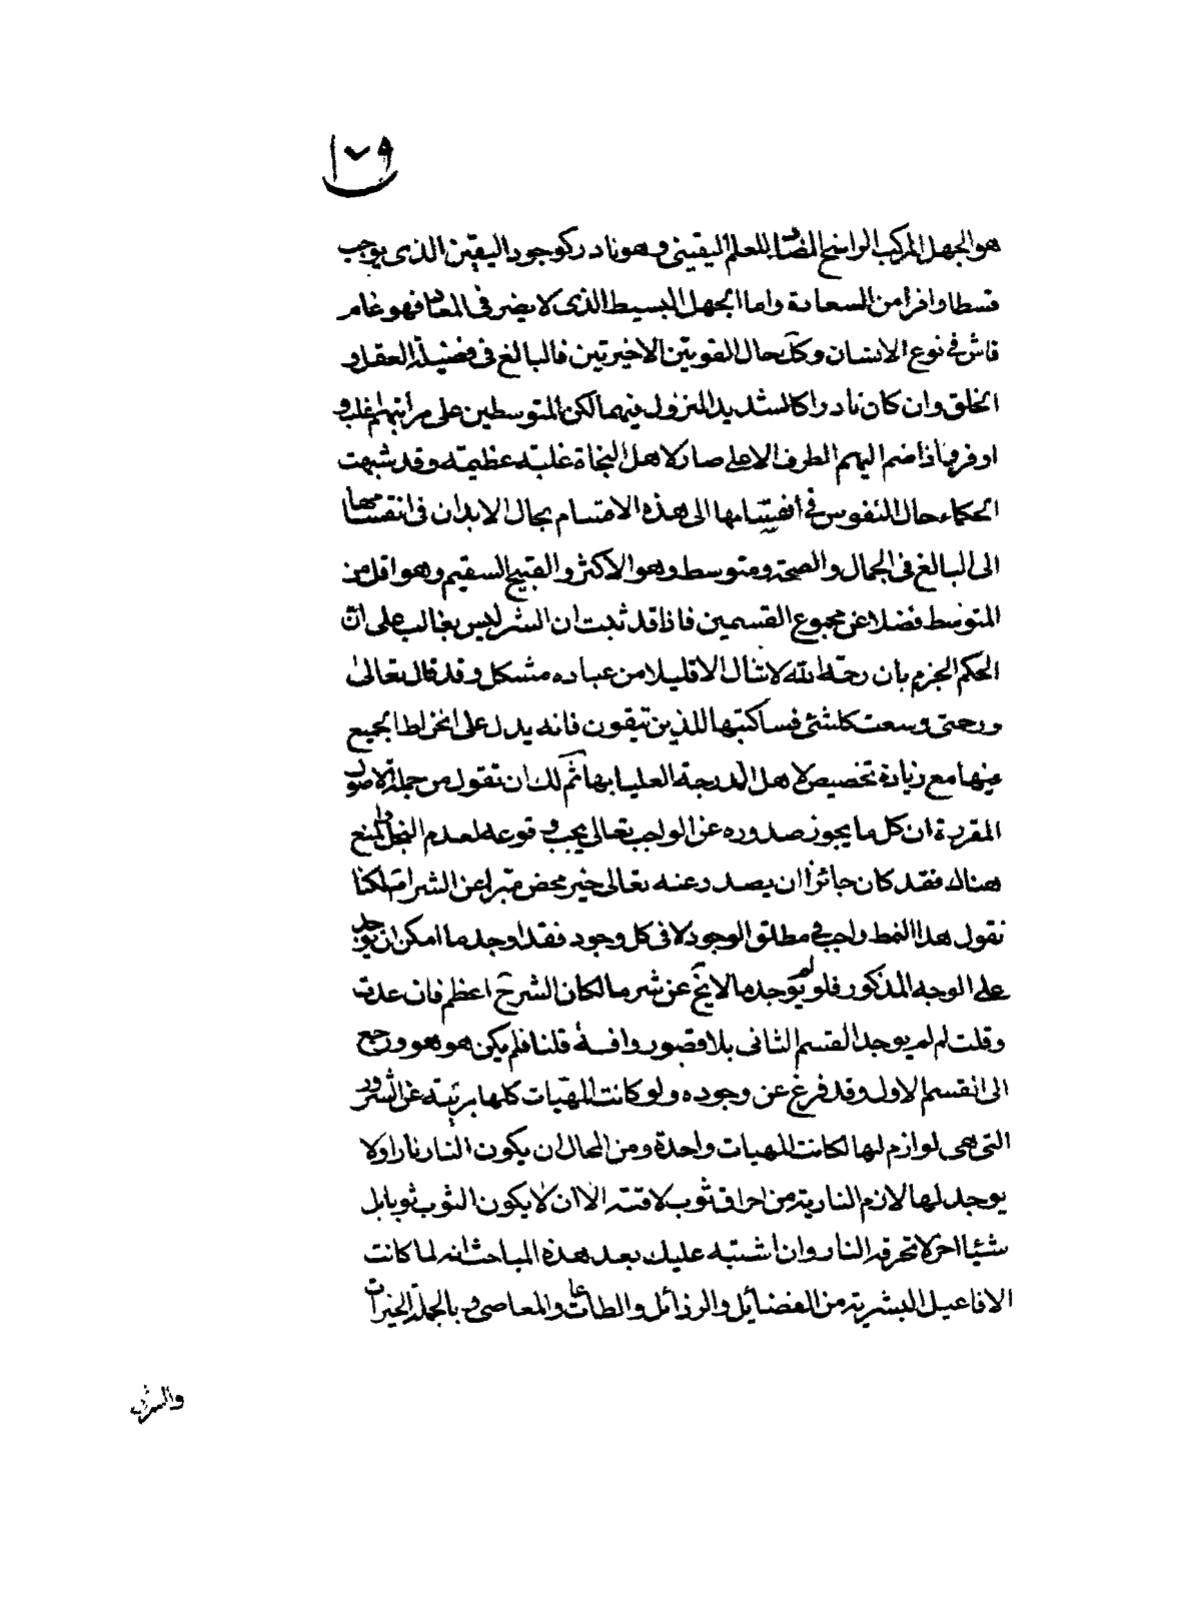 ١٧٩
هو الجهل المركب الراسخ المضاد للعلم اليقينى وهو نادر كوجود اليقين الذى يوجب
قسطا وافرا من السعادة واما الجهل البسيط الذى لا يضر فى المعاد فهو عام
فاش فى نوع الانسان وكذ حال القوتين الاخيرتين فالبالغ فى فضيلة العقل و
الخلق وان كان نادرا كالشديد النزول فيهما لكن المتوسطين على مراتبهم اغلب و
اوفر واذا ضم اليهم الطرف الاعلى صار لاهل النجاة غلبة عظيمة وقد شبهت
الحكماء حال النفوس فى أنقسامها الى هذه الاقسام بحال الابدان فى انقسامها
الى البالغ فى الجمال والصحة ومتوسط وهو الاكثر والقبيح السقيم وهو اقل من
المتوسط فضلا عن مجموع القسمين فاذا قد ثبت ان الشر ليس بغالب على ان
الحكم الجزم بان رحمة الله لا تنال الا قليلا من عباده مشكل وقد قال تعالى
ورحمتى وسعت كلشئ فساكتبها للذين يتقون فانه يدل على انخراط الجميع
فيها مع زيادة تخصيص لاهل الدرجة العليا بها ثم لك ان تقول من جملة الاصول
المقررة ان كل ما يجوز صدوره عن الواجب تعالى يجب وقوعه لعدم البخل والمنع
هناك فقد كان جائزا ان يصدر عنه تعالى خير محض مبرا عن الشر اصلا لكنا
نقول هذا النمط واجب فى مطلق الوجود لا فى كل وجود فقد اوجد ما امكن ان يوجد
على الوجه المذكور فلو لم يوجد ما لا يخ عن شر ما لكان الشر ح اعظم فان عدت
وقلت لم لم يوجد القسم الثانى بلا قصور وافة قلنا فلم يكن هو هو ورجع
الى القسم الاول وقد فرغ عن وجوده ولو كانت المهيات كلها برئية عن الشرور
التى هى لوازم لها لكانت المهيات واحدة ومن المحال ان يكون النار نارا ولا
يوجد لها لازم النارية من احراق ثوب لاقته الا ان لا يكون الثوب ثوبا بل
شيئا اخر لا تحرقه النار وان اشتبه عليك بعد هذه المباحث انه لما كانت
الافاعيل البشرية من الفضائل والرذائل والطاعات والمعاصى وبالجملة الخيرات
والشرور